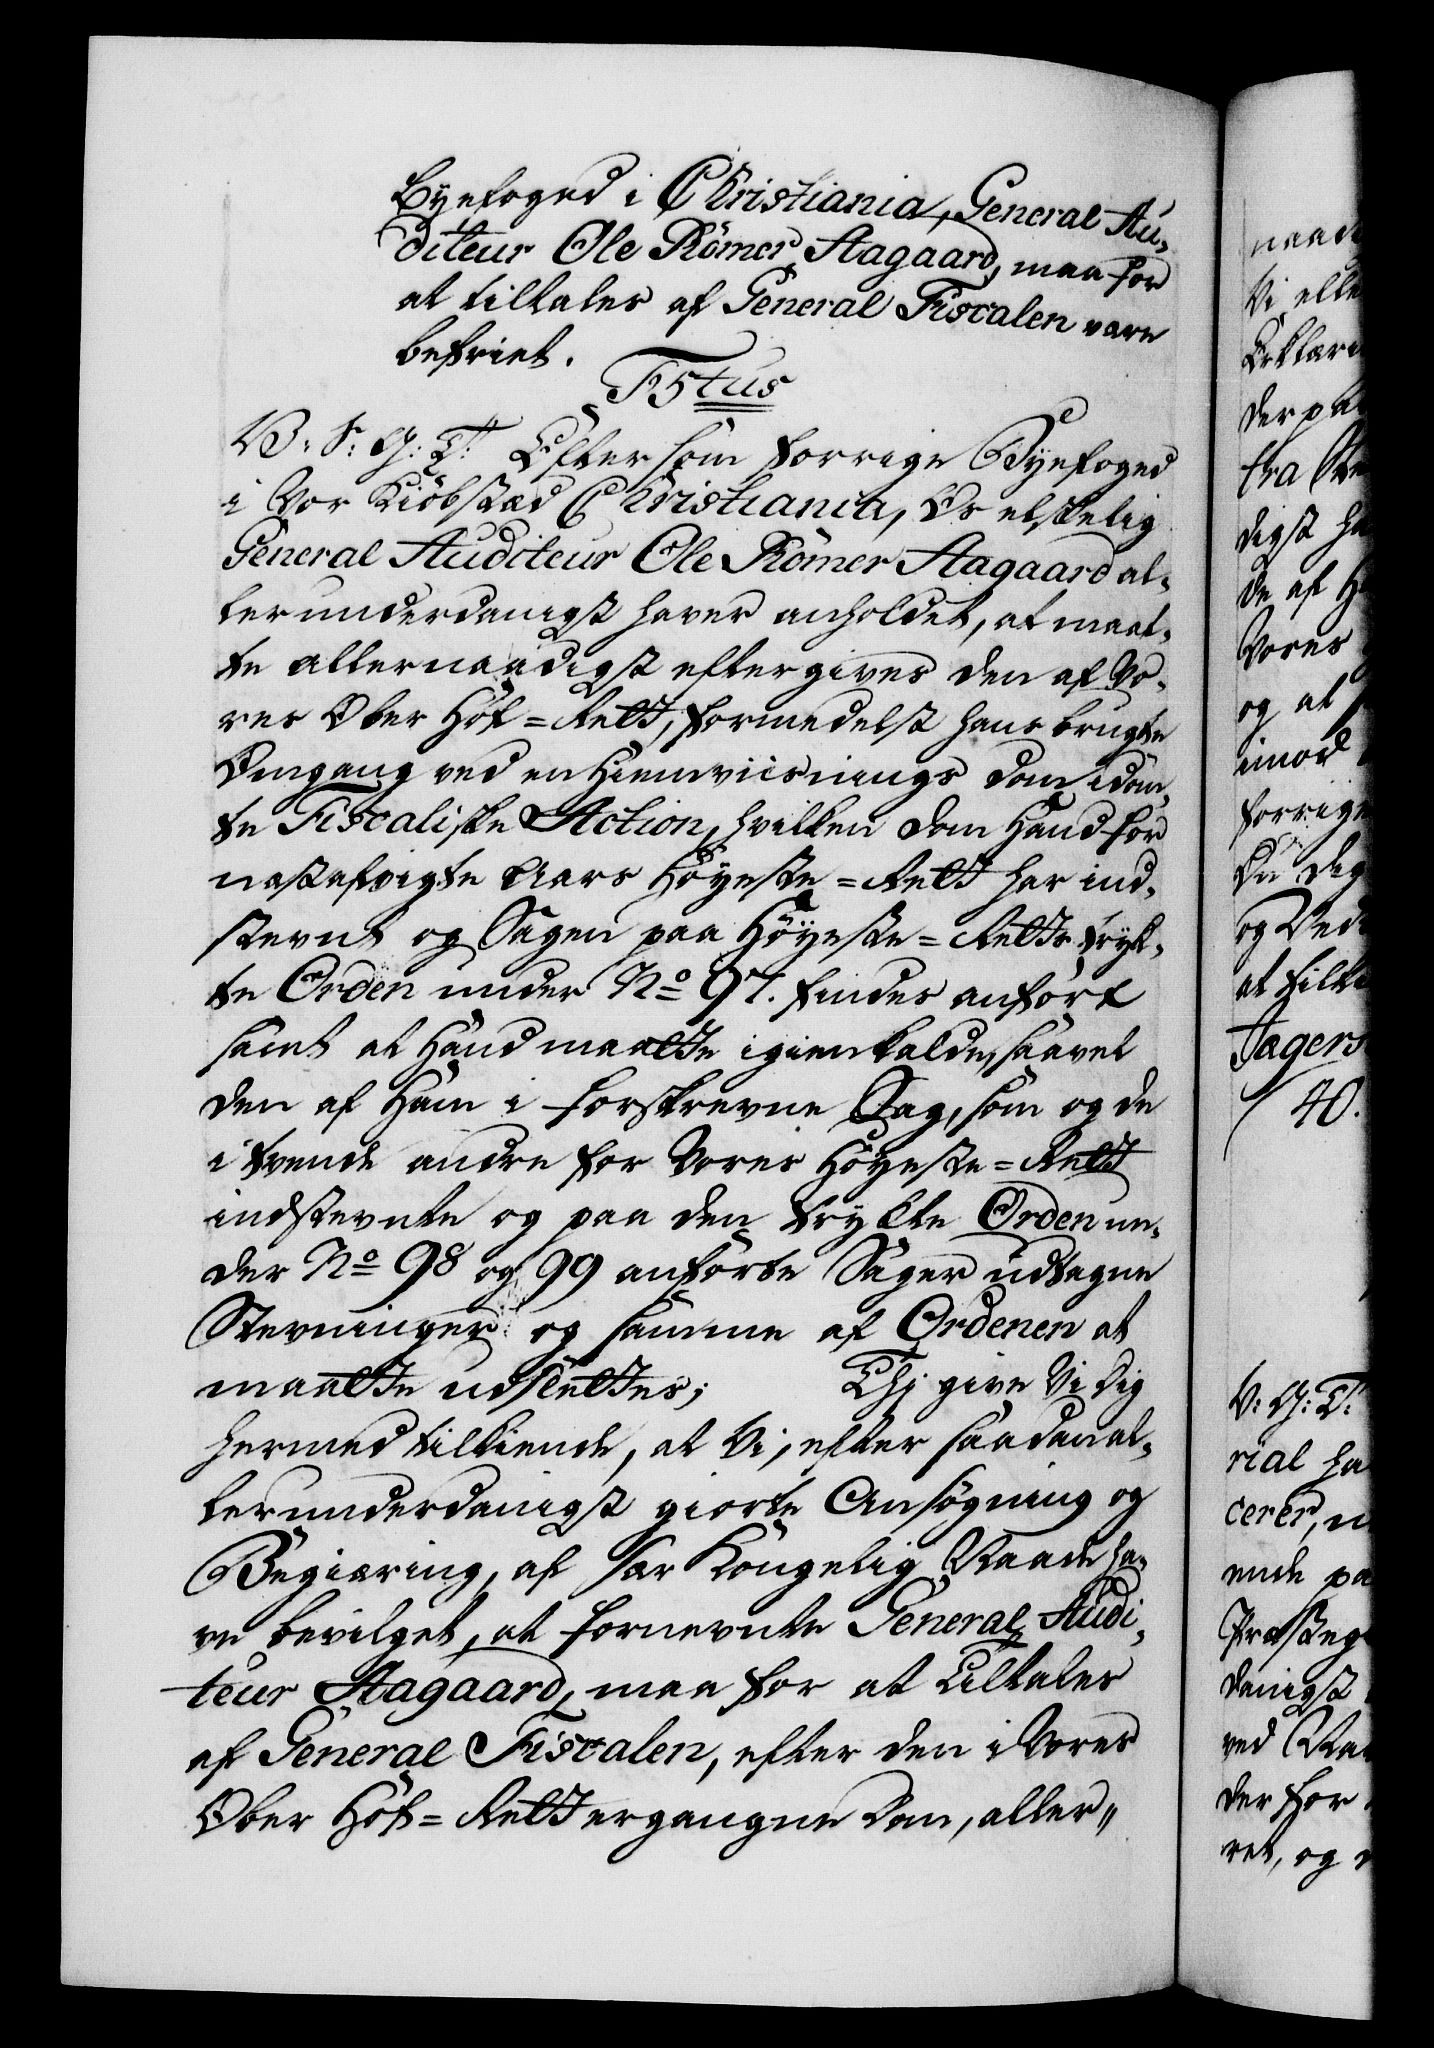 Byefoged i Christiania, General Au-
diteur Ole Römer Aagaard, maa for
at tiltales af General Fiscalen være
befriet.
F5tus
V: S: G: T: Eftersom forrige Byefoged
i Vor Kiöbstæd Christiania, Os elskelig
General Auditeur Ole Römer Aagaard al-
lerunderdanigst haver anholdet, at maat-
te allernaadigst eftergives den af Vo-
res Ober Hof=Rett, formedelst hans brugte
Omgang ved en Hiemviisnings Dom idöm-
te Fiscaliske Action, hvilken Dom Hand for
næstafvigte Aars Höyeste=Rett har ind-
stevnt og Sagen paa Höyeste=Retts tryk-
te Orden under No 97. findes anfört
samt at Hand maatte igienkalde, saavel
den af Ham i forskrevne Sag, som og de
i tvende andre for Vores Höyeste=Rett
indstevnte og paa den trykte Orden un-
der No 98 og 99 anförte Sager udtagne
Stevninger og samme af Ordenen at
maatte udslettes; Thj give Vi dig
hermed tilkiende, at Vi, efter saadan al-
lerunderdanigst giorte Ansögning og
Begiæring, af sær Kongelig Naade ha-
ve bevilget, at fornevnte General Audi-
teur Aagaard, maa for at tiltales
af General Fiscalen, efter den i Vores
Ober Hof=Rett ergangne Dom, aller"
naad
Vi elle
Erklæri
der paa
fra
digst ha
de af H
Vores
og at
imod
forrige
Du dig
og Ved
at tilk
Jagers
40.
V: G: T:
rial ha
cerer, n
ende pa
Præste
danigst
ved
der for
ret, og